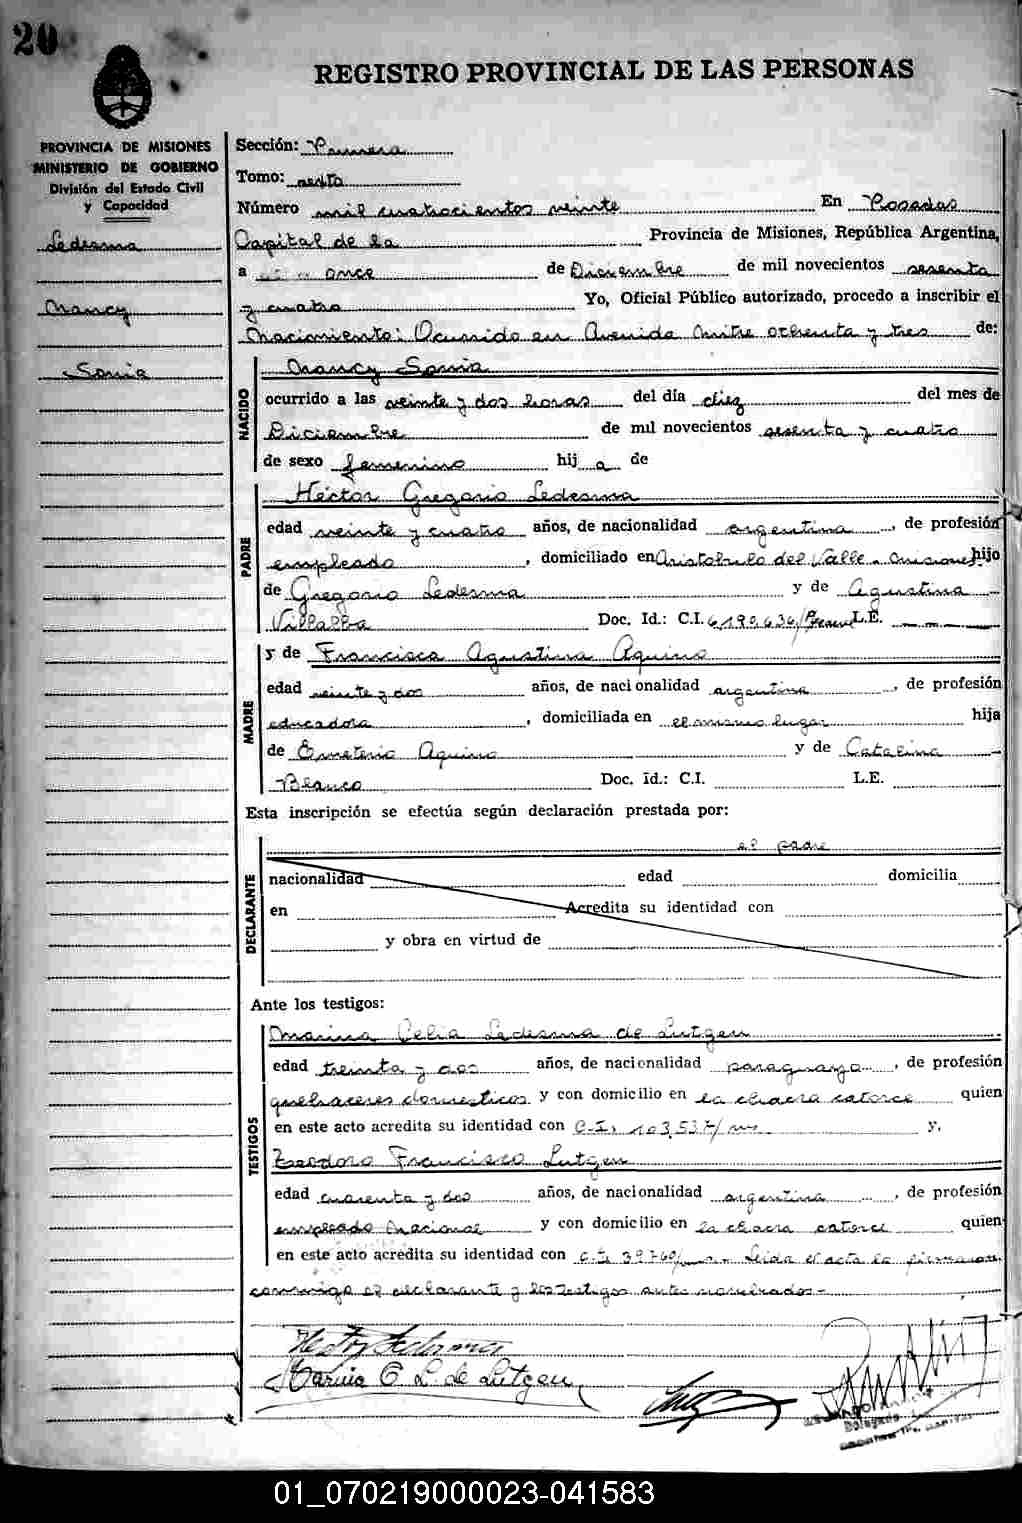 20
REGISTRO PROVINCIAL DE LAS PERSONAS
PROVINCIA DE MISIONES
MINISTERIO DE GOBIERNO
División del Estado Civil
y Capacidad
Ledesma
Nancy
Sonia
Sección: Primera
Tomo: sexto
Número mil cuatrocientos veinte En Posadas
Capital de la Provincia de Misiones, República Argentina,
a once de Diciembre de mil novecientos sesenta
y cuatro Yo, Oficial Público autorizado, procedo a inscribir el
Nacimiento: Ocurrido en Avenida Mitre ochenta y tres de:
NACIDO
Nancy Sonia
ocurrido a las veinte y dos horas del día diez del mes de
Diciembre de mil novecientos sesenta y cuatro
de sexo femenino hij a de
PADRE
Héctor Gregorio Ledesma
edad veinte y cuatro años, de nacionalidad argentina, de profesión
empleado, domiciliado en Aristobulo del Valle - Misiones hijo
de Gregorio Ledesma y de Agustina
Villalba Doc. Id.: C.I. 6,190,636/ L.E.
MADRE
y de Francisca Agustina Aquino
edad veinte y dos años, de nacionalidad argentina, de profesión
educadora, domiciliada en el mismo lugar hija
de Emeterio Aquino y de Catalina
Blanco Doc. Id.: C.I. L.E.
Esta inscripción se efectúa según declaración prestada por:
DECLARANTE
el padre
nacionalidad edad domicilia
en Acredita su identidad con
y obra en virtud de
Ante los testigos:
TESTIGOS
Marina Celia Ledesma de Lutgen
edad treinta y dos años, de nacionalidad paraguaya, de profesión
quehaceres domesticos y con domicilio en la chacra catorce quien
en este acto acredita su identidad con C.I. 103,537/ y,
Teodoro Francisco Lutgen
edad cuarenta y dos años, de nacionalidad argentina, de profesión
empleado Nacional y con domicilio en la chacra catorce quien
en este acto acredita su identidad con C.I. 39760/ Leida el acta la firmaron
conmigo el declarante y los testigos antes nombrados-
Hector Ledesma
Marina C. L. de Lutgen
Delegado
01_070219000023-041583